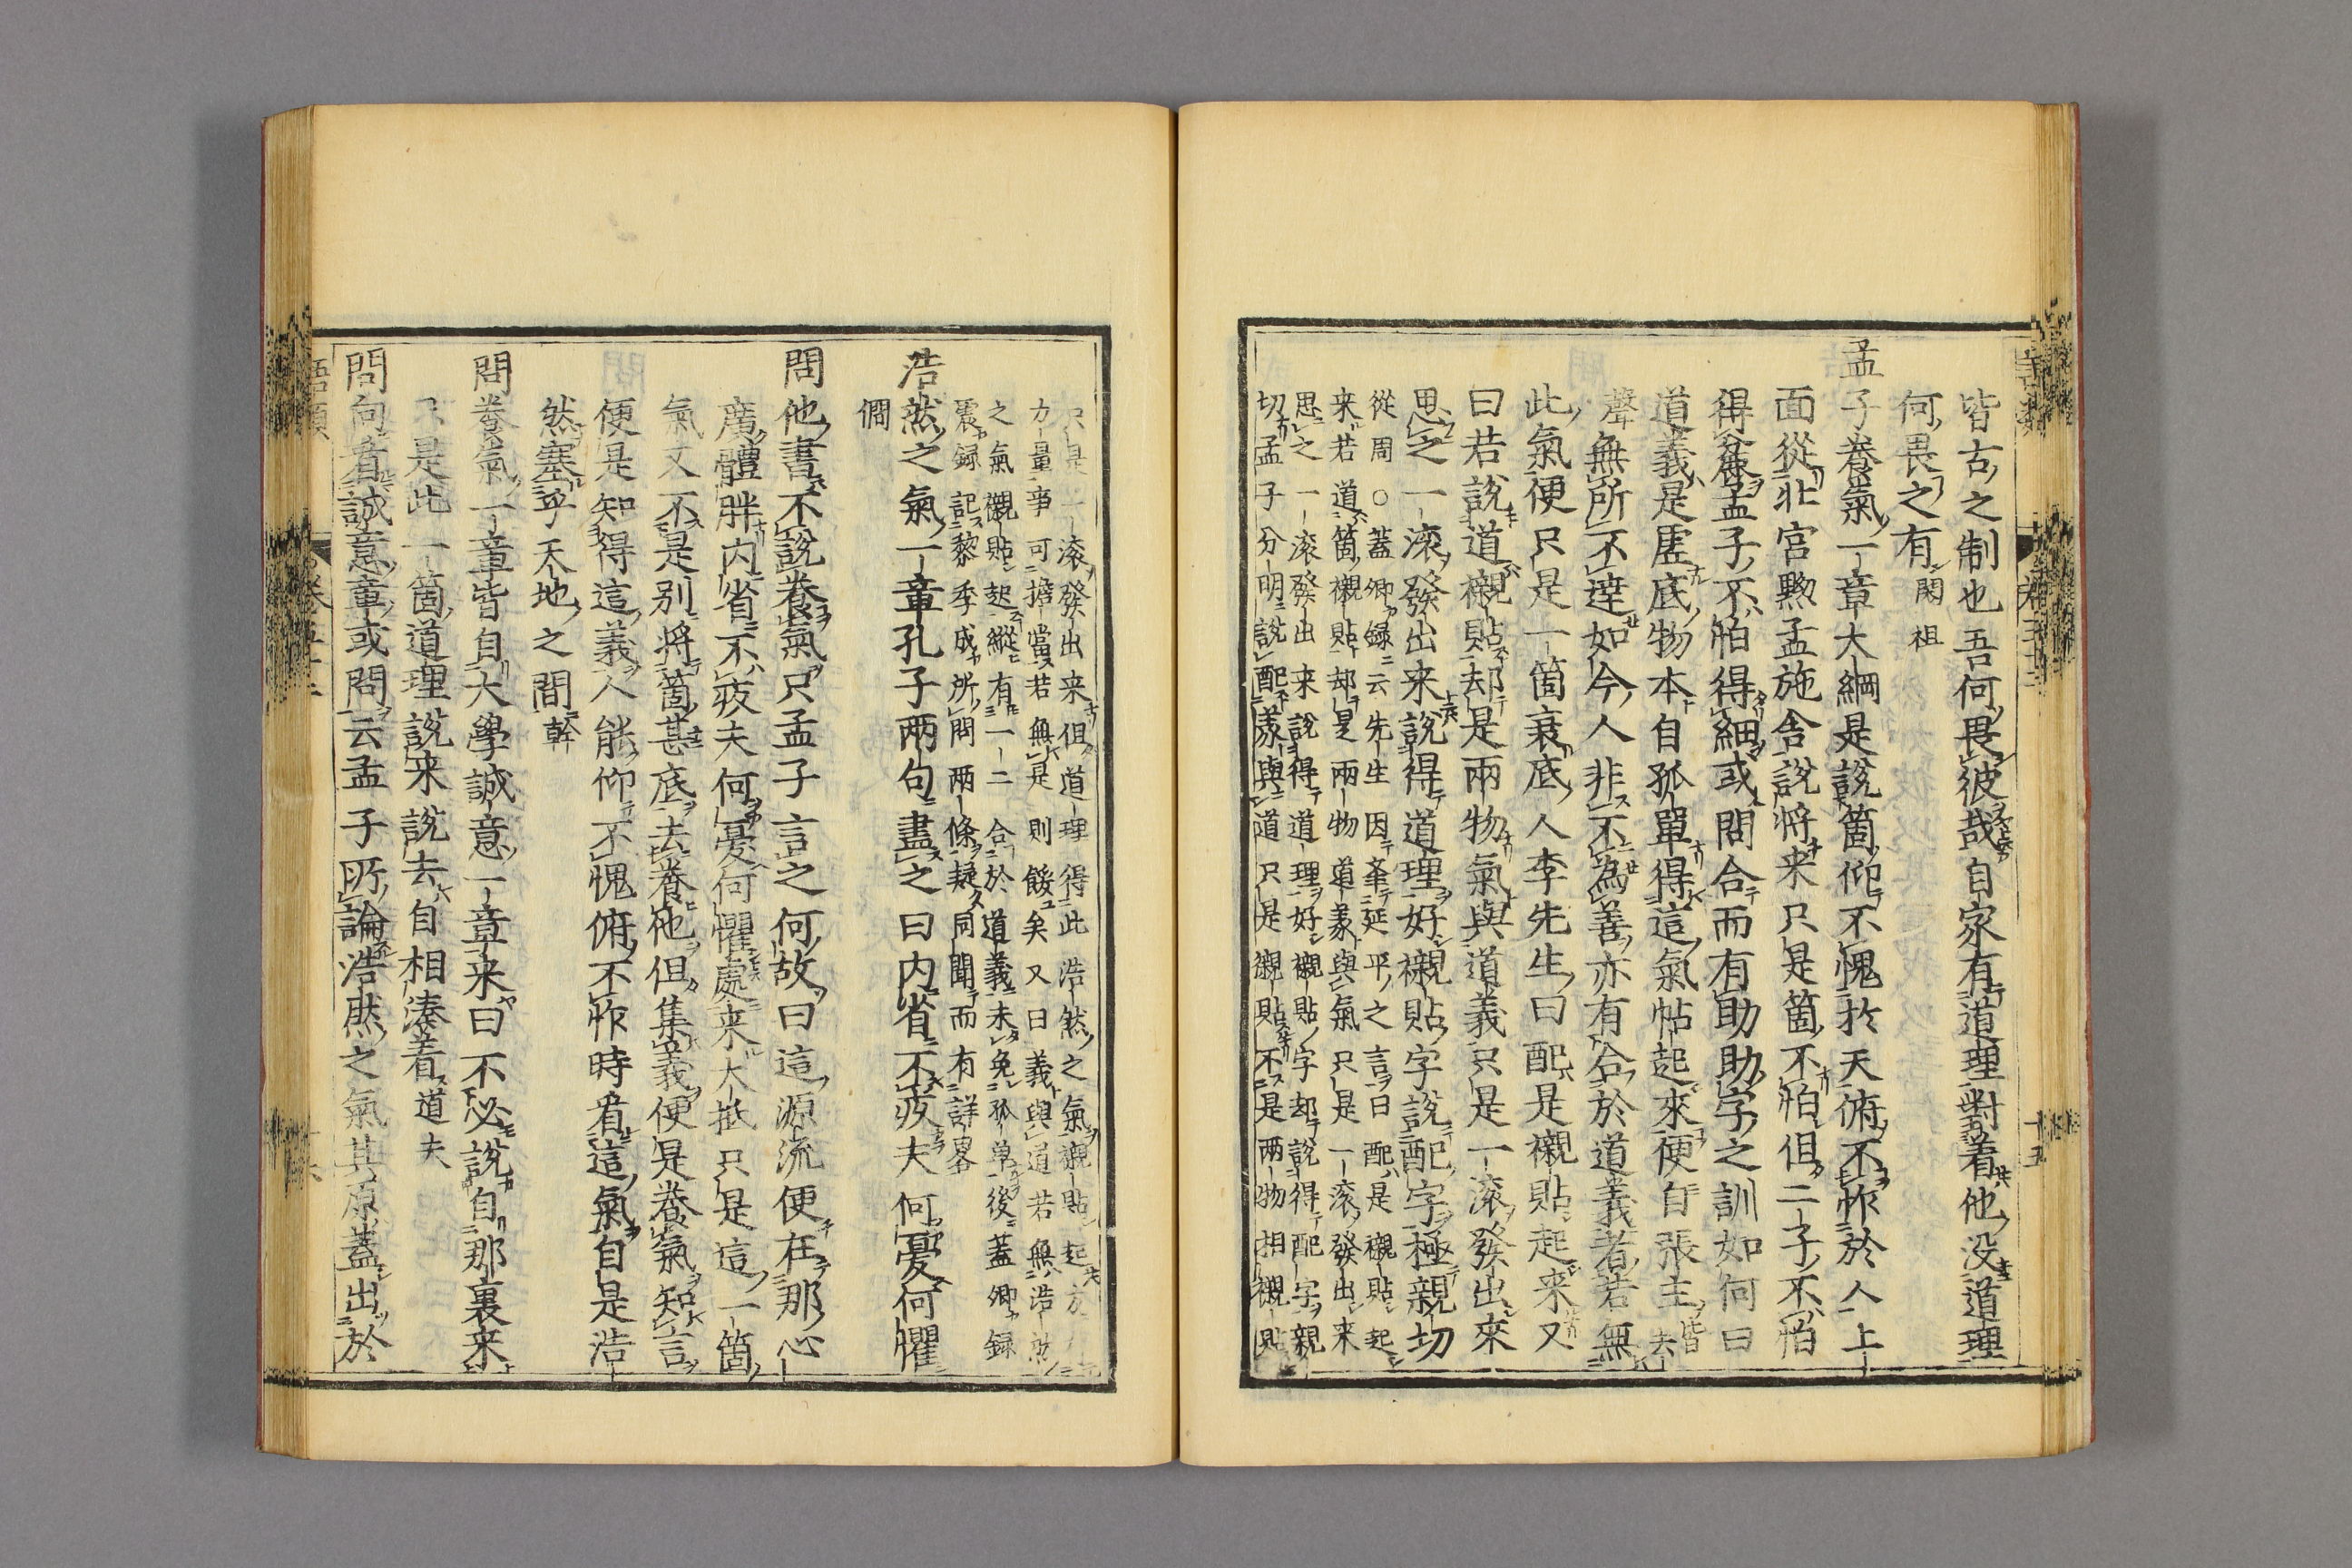 皆古之制也吾何畏彼哉自家有道理對着他没道理
何畏之有閎祖
孟子養氣一章大綱是說箇仰不愧於天俯不怍於人上
面從北宮黝孟施舍說將來只是箇不怕但二子不怕
得麄孟子不怕得細或問合而有助助字之訓如何曰
道義是虛底物本自孤單得這氣帖起來便自張主皆去
聲無所不達如今人非不爲善亦有合於道義者若無
此氣便只是一箇衰底人李先生曰配是襯貼起来又
曰若說道襯貼却是兩物氣與道義只是一滚發出來
思之一滚發出来說得道理好襯貼字說配字極親切
從周○蓋卿録云先生因舉延平之言曰配是襯貼起
来若道箇襯貼却是兩物道義與氣只是一滚發出来
思之一滚發出来說得道理好襯貼字却說得配字親
切孟子分明說配義與道只是襯貼不是兩物相襯貼
只是一滚發出来但道理得此浩然之氣襯貼起方有
力量事可擔當若無是則餒矣又曰義與道若無浩然
之氣襯貼起縱有一二合於道義未免孤單後蓋卿録
震録記黎季成所問兩條疑同聞而有詳畧
浩然之氣一章孔子兩句盡之曰内省不疚夫何憂何懼
僴
問他書不說養氣只孟子言之何故曰這源流便在那心
廣體胖内省不疚夫何憂何懼處来大抵只是這一箇
氣又不是別將箇甚底去養他但集義便是養氣知言
便是知得這義人能仰不愧俯不怍時看這氣自是浩
然塞乎天地之間榦
問養氣一章皆自大學誠意一章来曰不必說自那裏来
只是此一箇道理說来說去自相湊着道夫
問向看誠意章或問云孟子所論浩然之氣其原蓋出於